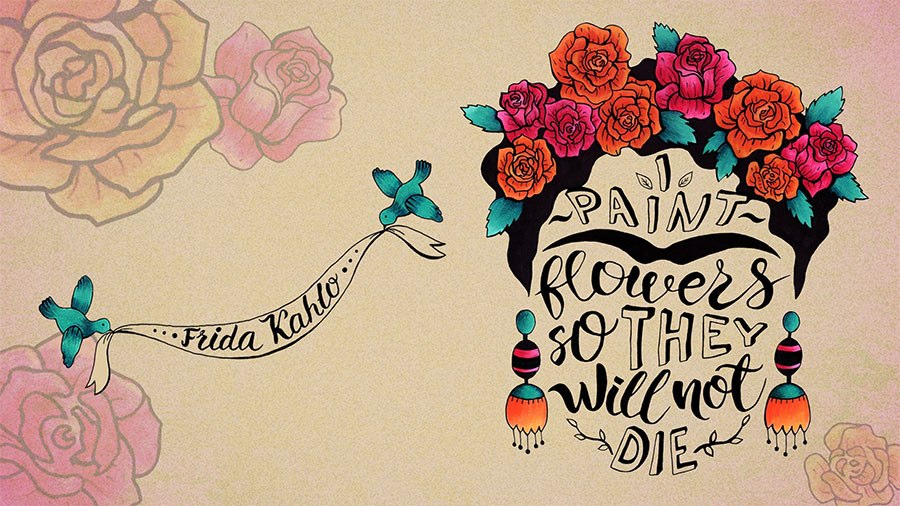 Frida Kahlo
I
PAINT
flowers
SO THEY
will not
DIE